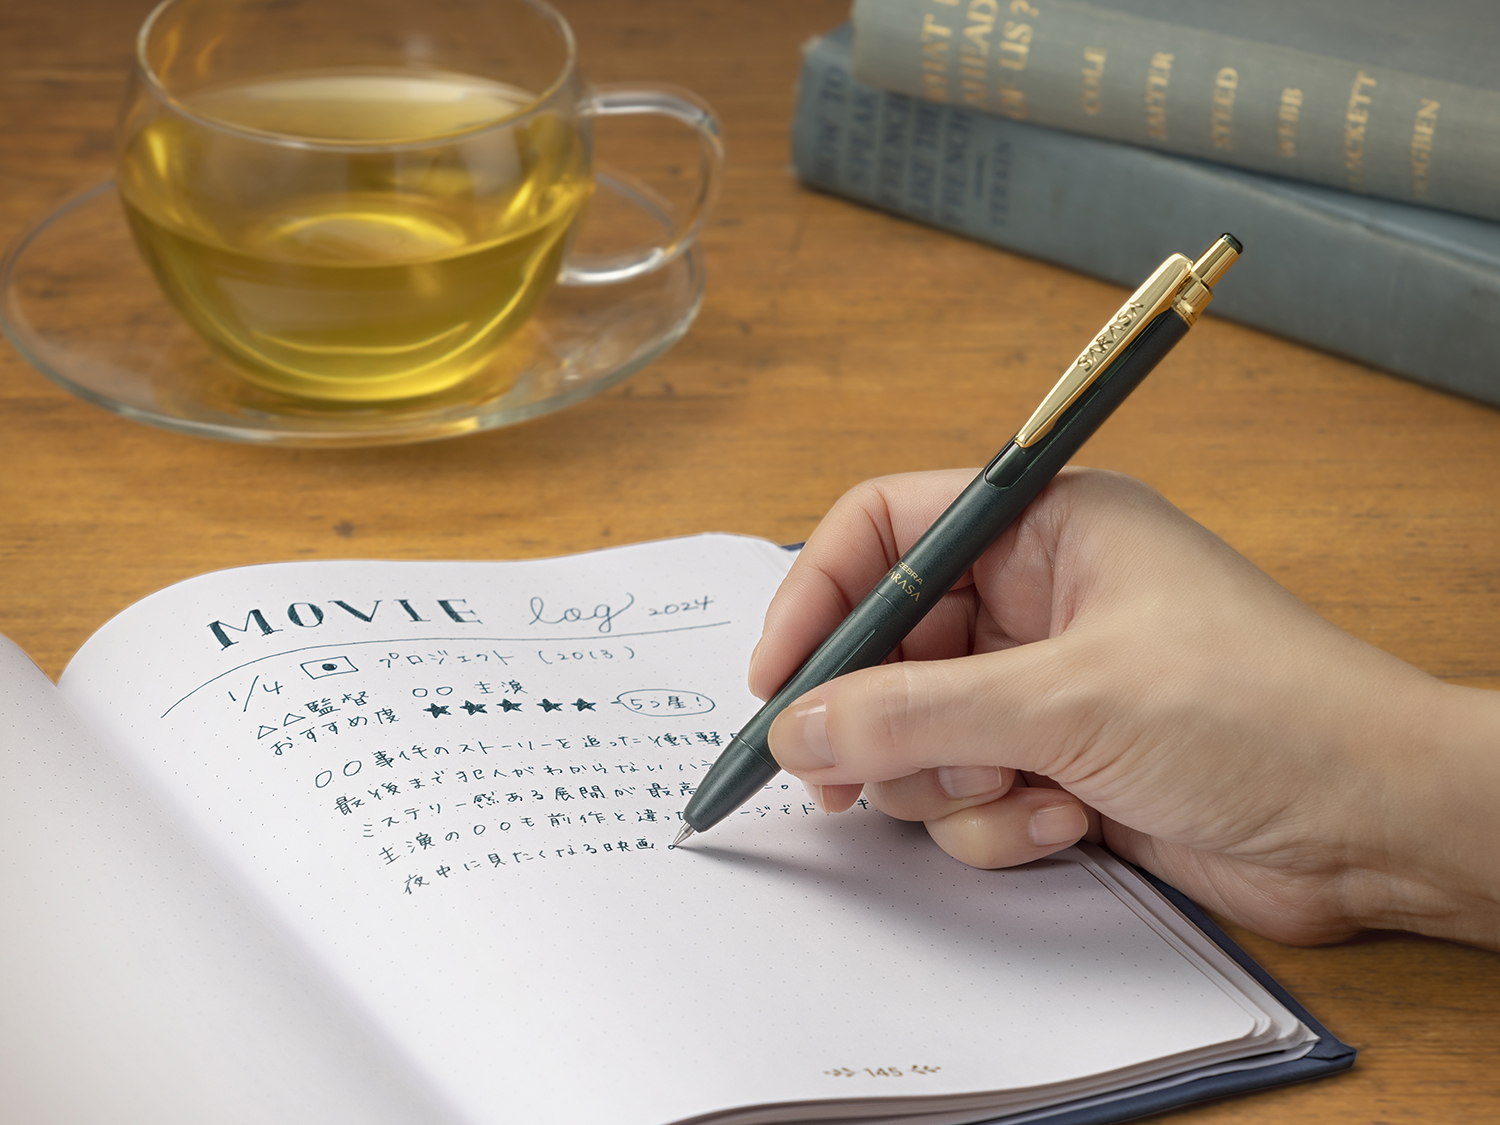 WHAT
AHEAD
OF US?
COLE
STEED
WEBB
HOW TO
SPEAK
FRENCH
LIKE THE
FRENCH
SARASA
ZEBRA
SARASA
MOVIE log 2024
1/4 プロジェクト (2013)
△△監督 〇〇 主演
おすすめ度 ★★★★★ 5つ星!
〇〇事件のストーリーを追った衝撃
最後まで犯人がわからない
ミステリー感ある展開が最高
主演の〇〇も前作と違った ージで
夜中に見たくなる映画。
145